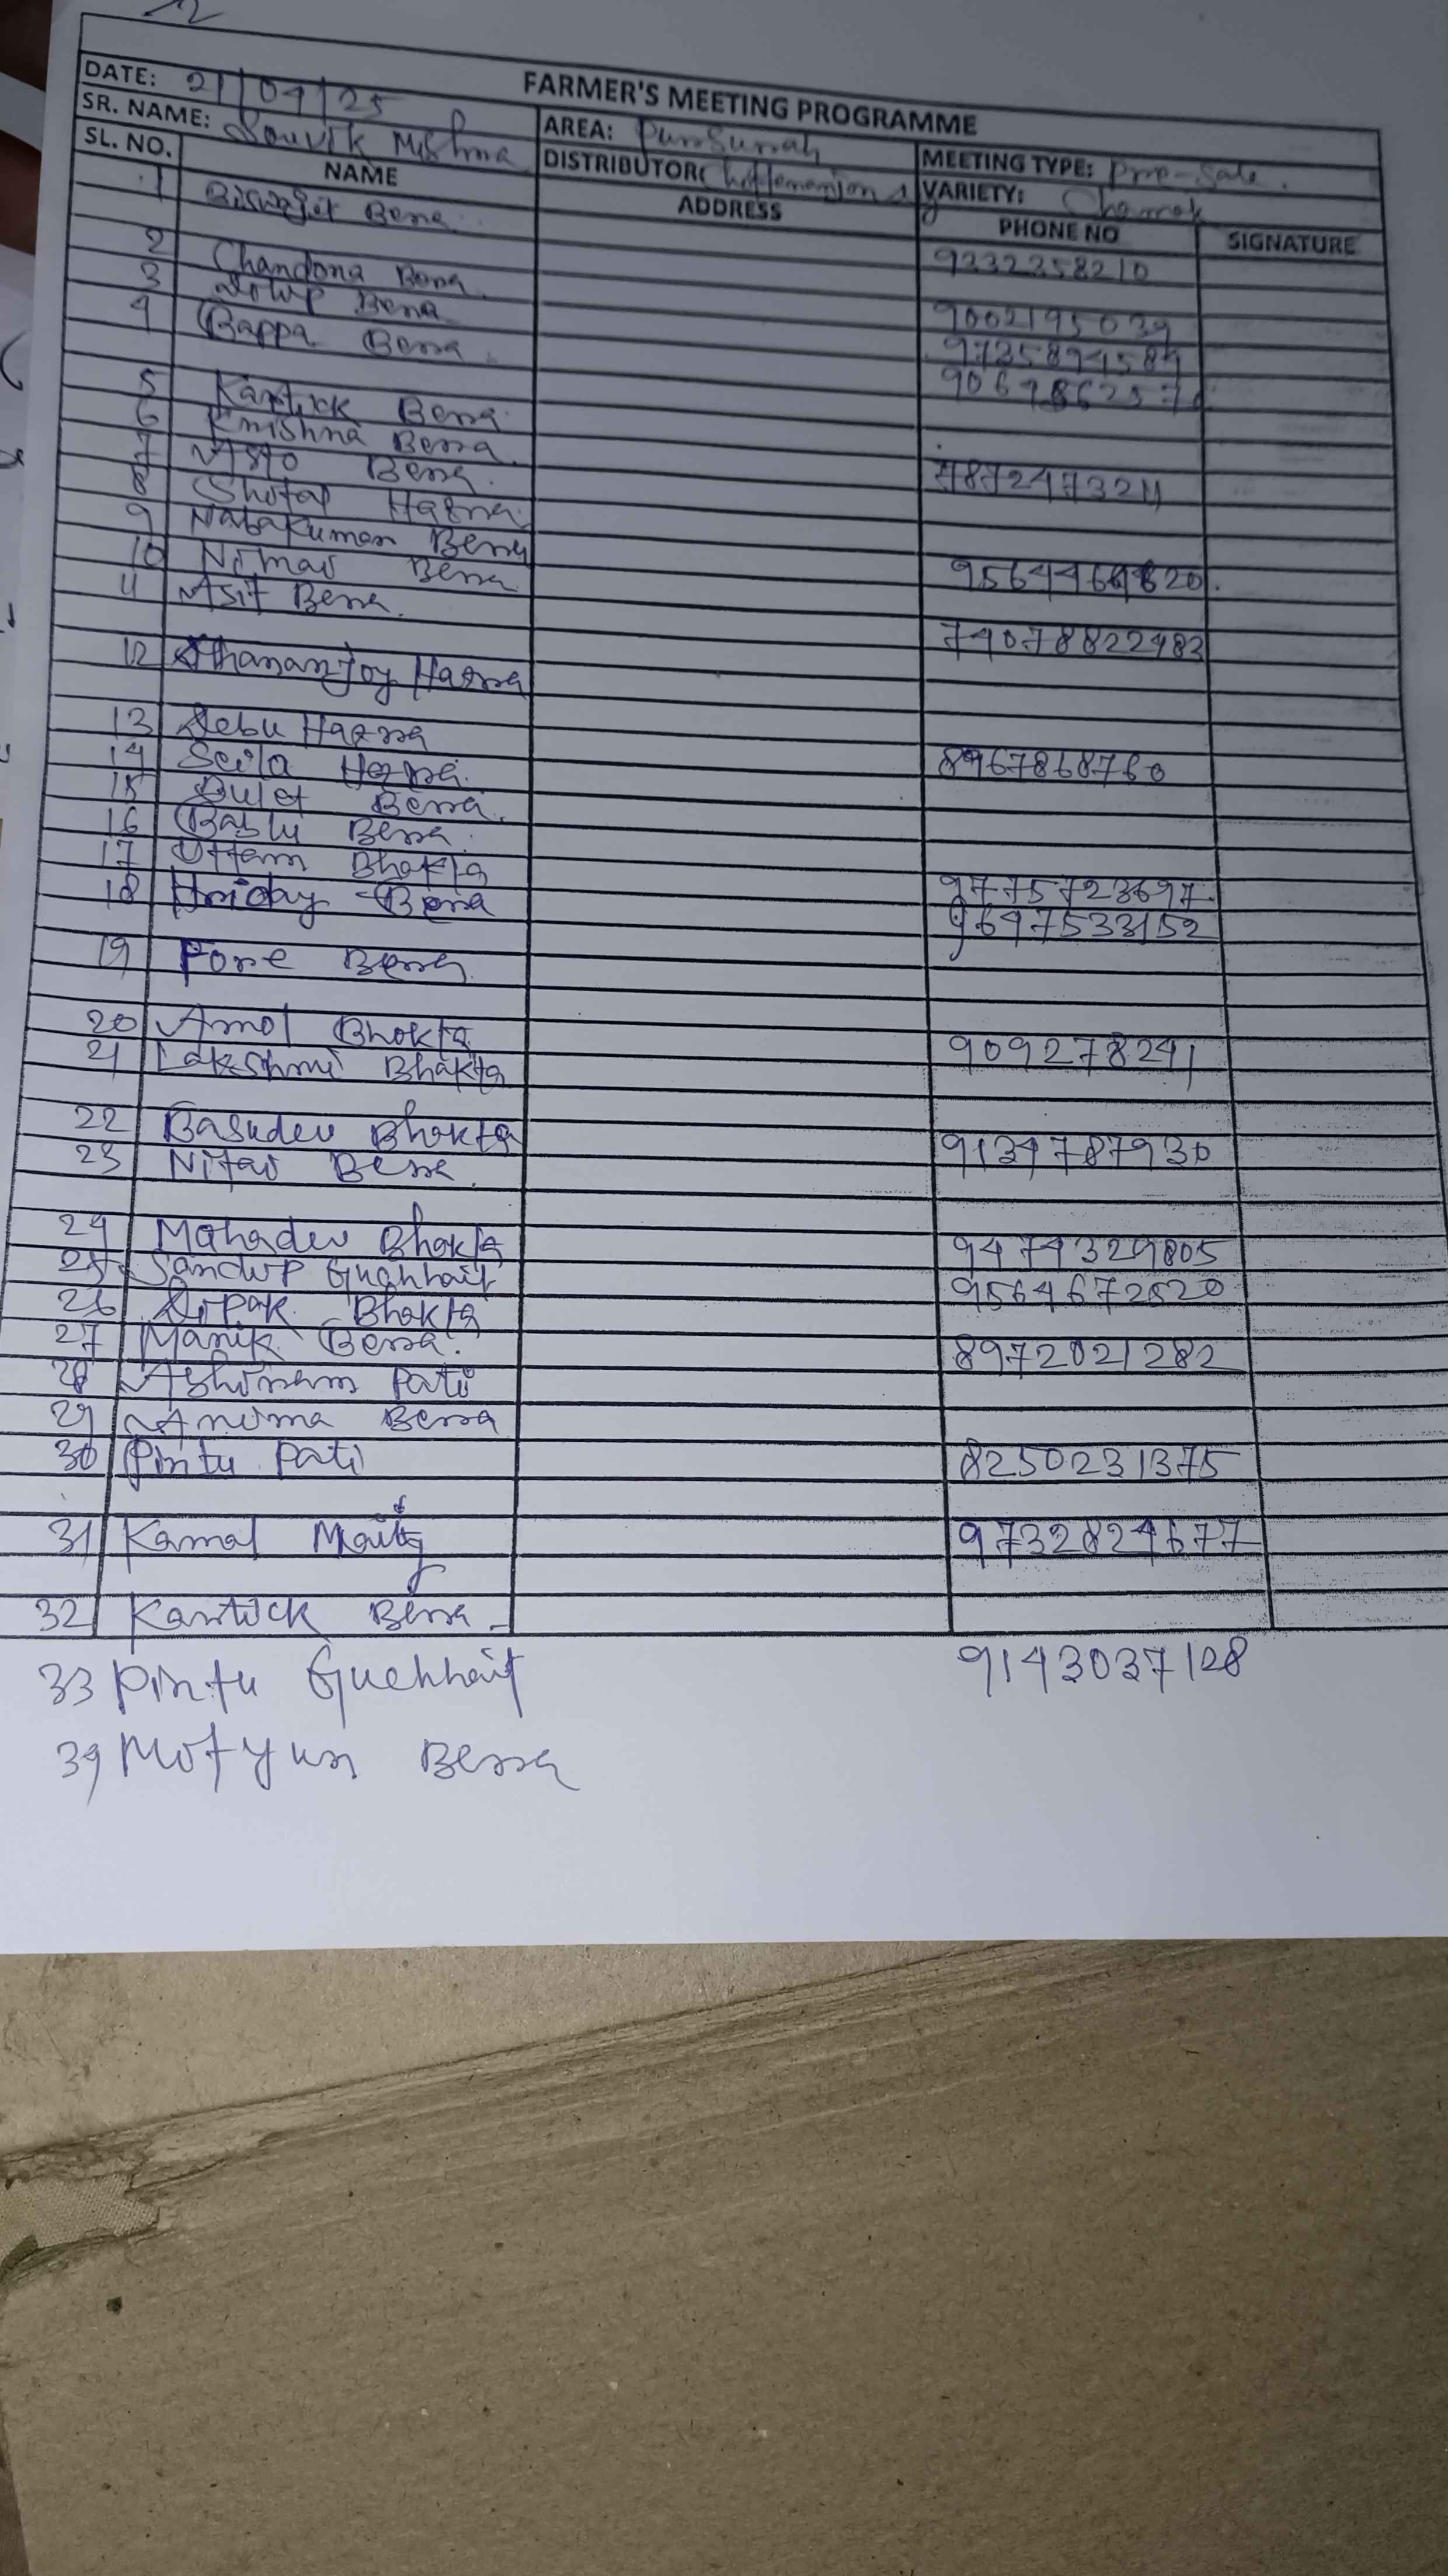 FARMER'S MEETING PROGRAMME
DATE: 21/04/25 AREA: Pursurah MEETING TYPE: Pre-Sale.
SR. NAME: Souvik Mishra DISTRIBUTOR: VARIETY: Chamak
SL. NO. NAME ADDRESS PHONE NO SIGNATURE
1 Biswajit Bera 9232258210
2 Chandona Bera 9002195039
3 Bera 9735894584
4 Bappa Bera
5 Kartick Bera
6 Krishna Bera
7 Bera 7872473211
8 Hazra
9 Nabakumar Bera
10 Nimai Bera
11 Asit Bera 74078822483
12 Dhananjoy Hazra
13 Debu Hazra 8967868760
14 Hazra
15 Bera
16 Bablu Bera
17 Uttam Bhakta 9775723697
18 Hriday Bera 9647533152
19 Bera
20 Amol Bhokta 909278241
21 Lakshmi Bhakta
22 Basudev Bhokta 9134787930
23 Nitai Bera
24 Mahadev Bhakta 9474329805
25 Sandip Guchhait 9564672520
26 Dipak Bhakta
27 Manik Bera 8972021282
28 Pati
29 Anima Bera
30 Pintu Pati 8250231375
31 Kamal Maity 9732824677
32 Kartick Bera
33 Pintu Guchhait 9143037128
34 Bera